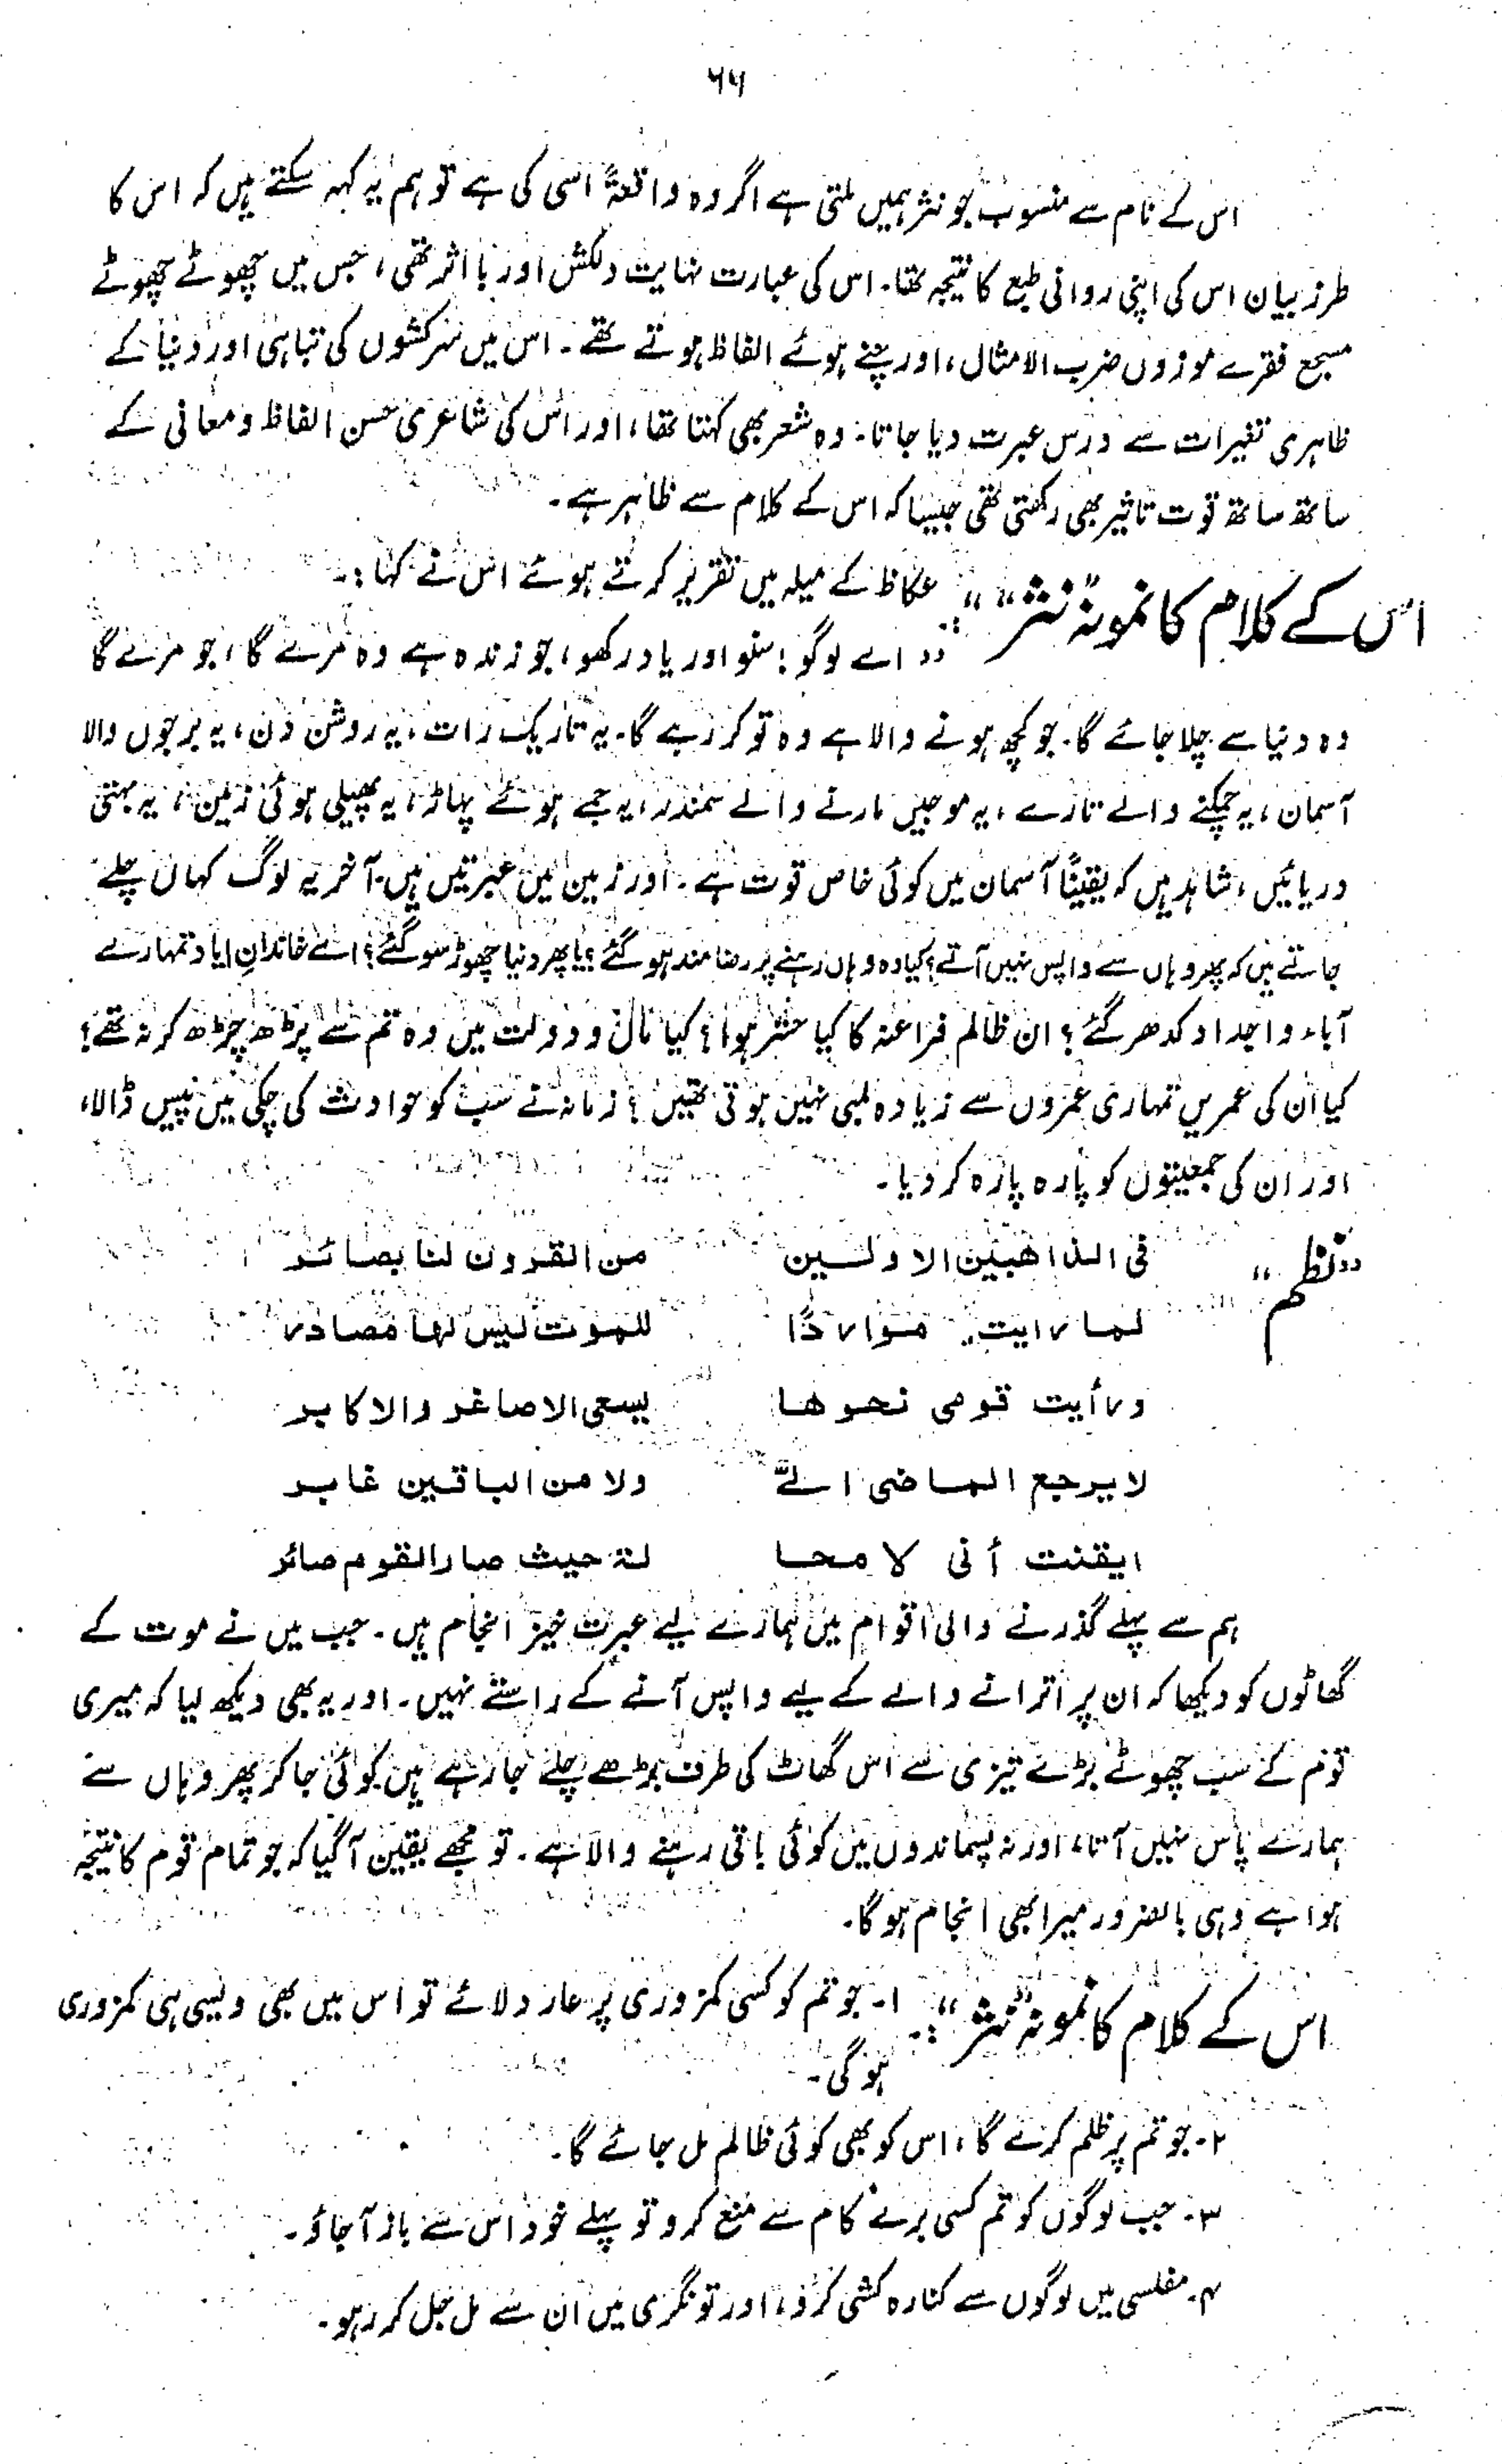 ۶۶
اس کے نام سے منسوب جو نثر ہمیں ملتی ہے اگر وہ واقعۃً اسی کی ہے تو ہم یہ کہہ سکتے ہیں کہ اس کا
طرز بیان اس کی اپنی روانی طبع کا نتیجہ تھا۔ اس کی عبارت نہایت دلکش اور با اثر تھی، جس میں چھوٹے چھوٹے
مسجع فقرے موزوں ضرب الامثال، اور چنے ہوئے الفاظ ہوتے تھے۔ اس میں سرکشوں کی تباہی اور دنیا کے
ظاہری تغیرات سے درس عبرت دیا جاتا۔ وہ شعر بھی کہتا تھا، اور اس کی شاعری حسن الفاظ و معانی کے
ساتھ ساتھ قوت تاثیر بھی رکھتی تھی جیسا کہ اس کے کلام سے ظاہر ہے۔
اس کے کلام کا نمونہ "نثر" :۔ عکاظ کے میلہ میں تقریر کرتے ہوئے اس نے کہا :۔
"اے لوگو! سنو اور یاد رکھو، جو زندہ ہے وہ مرے گا، جو مرے گا
وہ دنیا سے چلا جائے گا۔ جو کچھ ہونے والا ہے وہ تو کر رہے گا۔ یہ تاریک رات، یہ روشن دن، یہ برجوں والا
آسمان، یہ چمکنے والے تارے، یہ موجیں مارنے والے سمندر، یہ جمے ہوئے پہاڑ، یہ پھیلی ہوئی زمین، یہ بہتی
دریائیں، شاہد ہیں کہ یقیناً آسمان میں کوئی خاص قوت ہے۔ اور زمین میں عبرتیں ہیں۔ آخر یہ لوگ کہاں چلے
جاتے ہیں کہ پھر وہاں سے واپس نہیں آتے؟ کیا وہ وہاں رہنے پر رضا مند ہو گئے؟ یا پھر دنیا چھوڑ سو گئے؟ اے خاندانِ ایاد تمہارے
آباء و اجداد کدھر گئے؟ ان ظالم فراعنہ کا کیا حشر ہوا؟ کیا مال و دولت میں وہ تم سے بڑھ چڑھ کر نہ تھے؟
کیا ان کی عمریں تمہاری عمروں سے زیادہ لمبی نہیں ہوتی تھیں؟ زمانہ نے سب کو حوادث کی چکی میں پیس ڈالا،
اور ان کی جمعیتوں کو پارہ پارہ کر دیا۔
"نظم" فی الذاھبین الاولسین من القرون لنا بصائر
لما رایت مواردًا للموت لیس لھا مصادر
ورأیت قومی نحوھا یسعی الاصاغر والاکابر
لا یرجع الماضی الیَّ ولا من الباقین غابر
ایقنت أنی لا محا لۃ حیث صار القوم صائر
ہم سے پہلے گذرنے والی اقوام میں ہمارے لیے عبرت خیز انجام ہیں۔ جب میں نے موت کے
گھاٹوں کو دیکھا کہ ان پر اترانے والے کے لیے واپس آنے کے راستے نہیں۔ اور یہ بھی دیکھ لیا کہ میری
قوم کے سب چھوٹے بڑے تیزی سے اس گھاٹ کی طرف بڑھے چلے جا رہے ہیں کوئی جا کر پھر وہاں سے
ہمارے پاس نہیں آتا، اور نہ پسماندوں میں کوئی باقی رہنے والا ہے۔ تو مجھے یقین آ گیا کہ جو تمام قوم کا نتیجہ
ہوا ہے وہی بالضرور میرا بھی انجام ہو گا۔
اس کے کلام کا نمونہ "نثر" :۔ ۱۔ جو تم کو کسی کمزوری پر عار دلائے تو اس میں بھی ویسی ہی کمزوری
ہو گی۔
۲۔ جو تم پر ظلم کرے گا، اس کو بھی کوئی ظالم مل جائے گا۔
۳۔ جب لوگوں کو تم کسی برے کام سے منع کرو تو پہلے خود اس سے باز آ جاؤ۔
۴۔ مفلسی میں لوگوں سے کنارہ کشی کرو، اور تونگری میں ان سے مل جل کر رہو۔